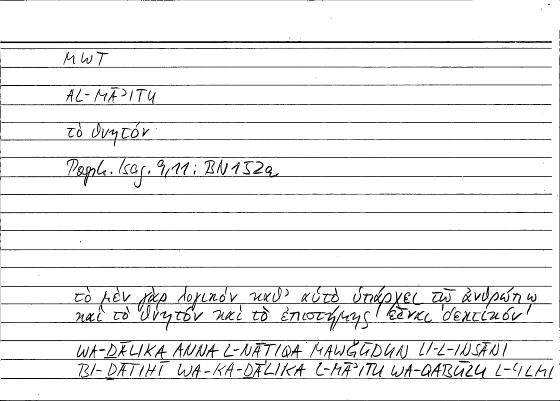 MWT
AL-MĀʾITU
τὸ θνητόν
Porph. Isag. 9,11: BN152a
τὸ μὲν γὰρ λογικὸν καθ' αὑτὸ ὑπάρχει τῷ ἀνθρώπῳ
καὶ τὸ θνητὸν καὶ τὸ ἐπιστήμης εἶναι δεκτικόν
WA-ḎĀLIKA ANNA L-NĀṬIQA MAWǦŪDUN LI-L-INSĀNI
BI-ḎĀTIHĪ WA-KA-ḎĀLIKA L-MĀʾITU WA-QABŪLU L-ʿILMI